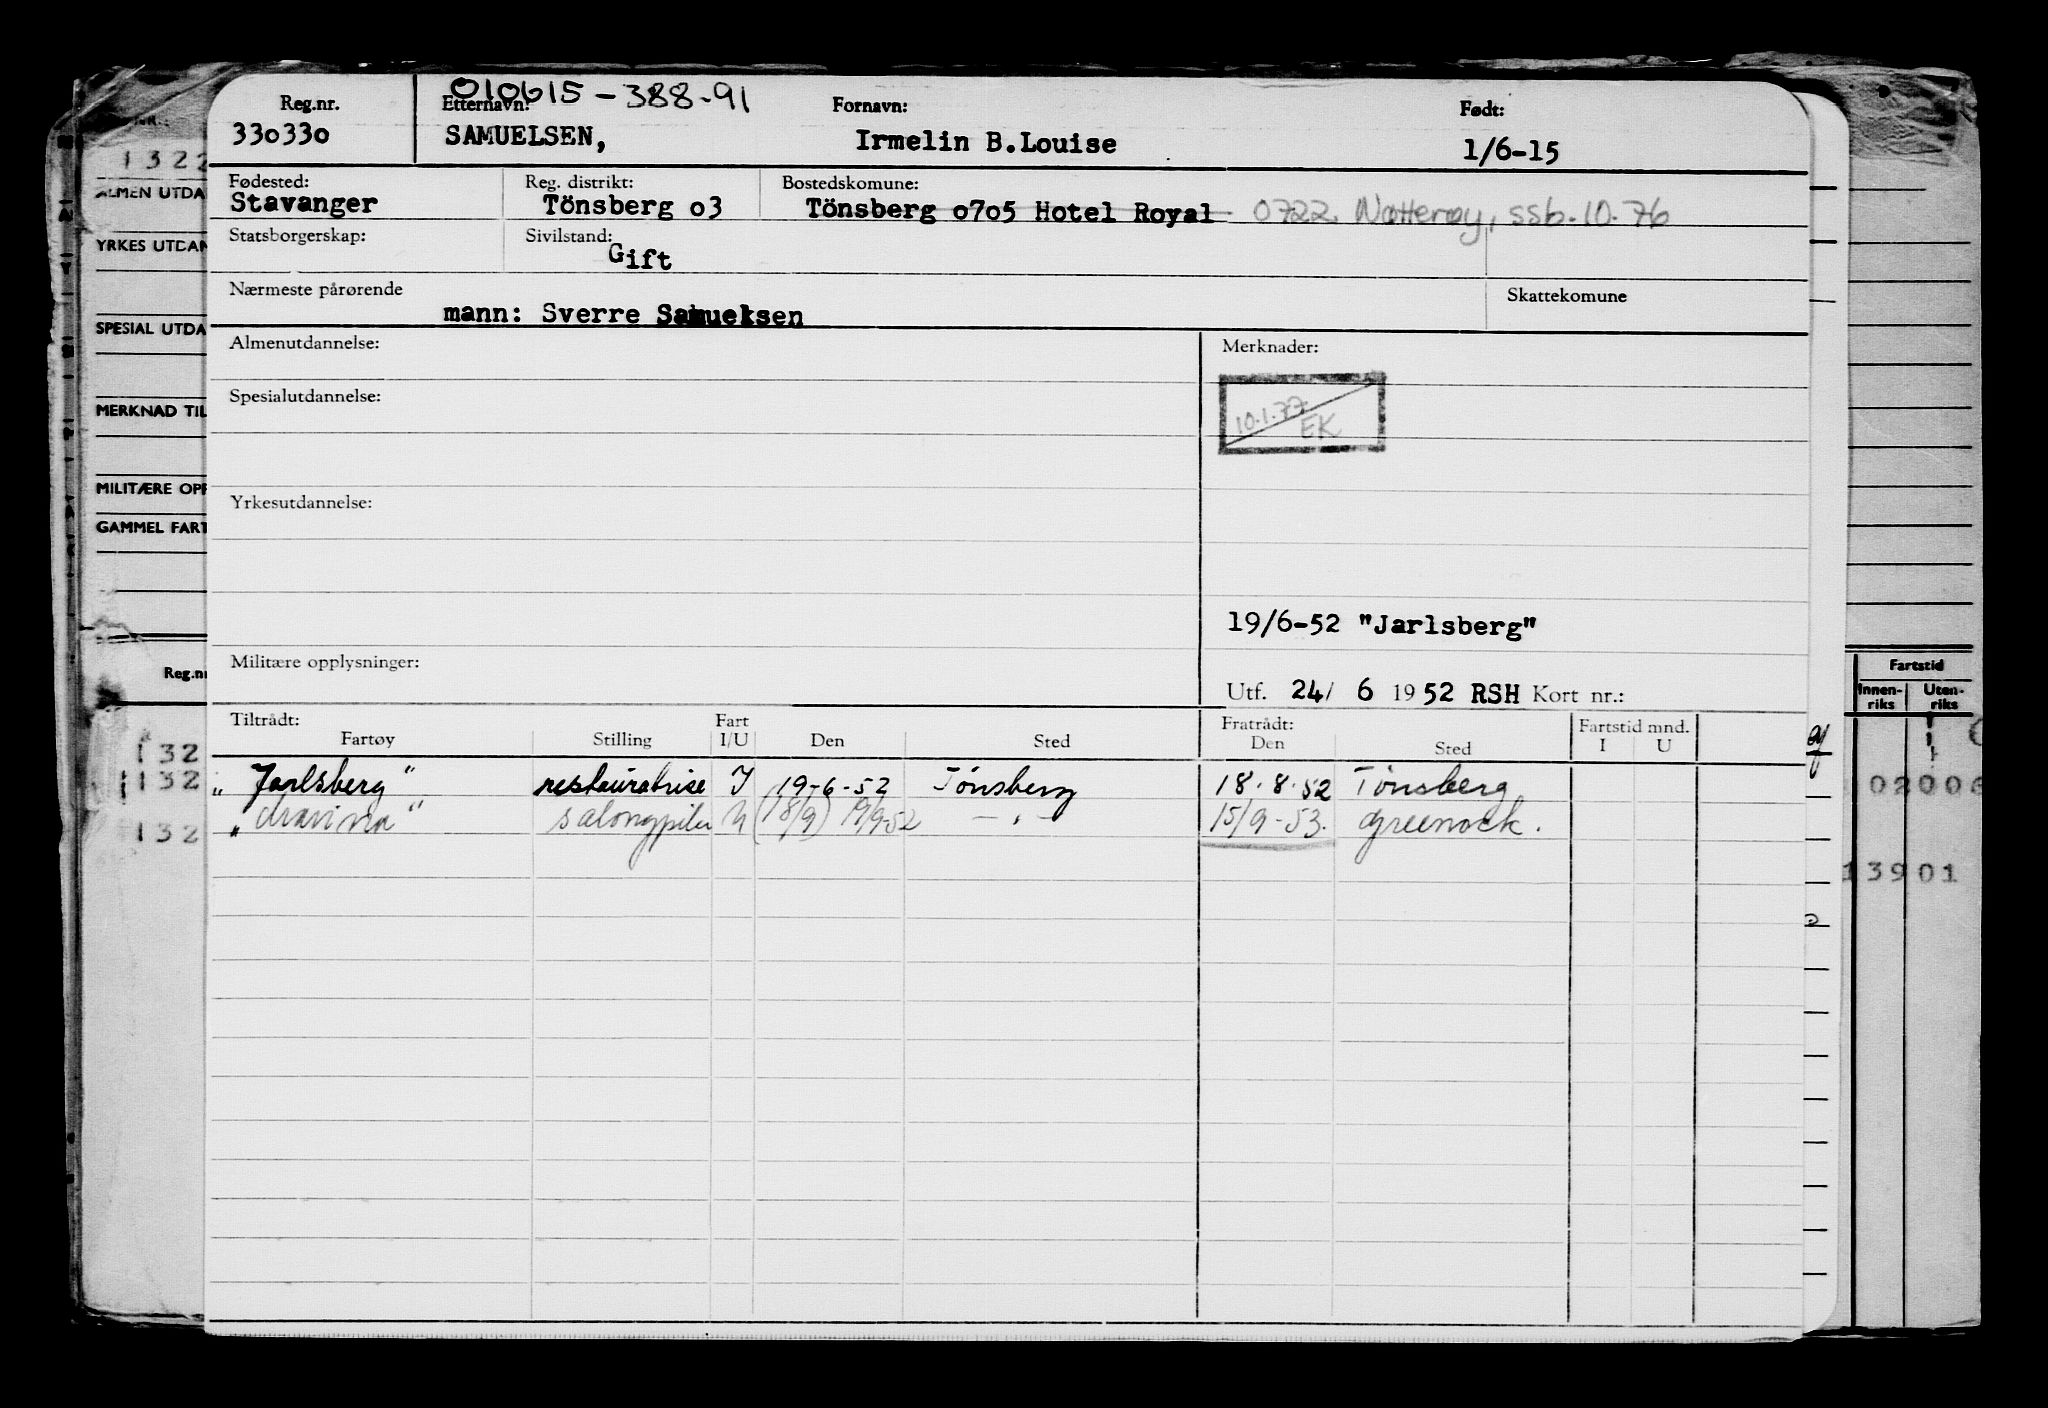 010615-388-91
Reg.nr. Etternavn: Fornavn: Født:
330330 SAMUELSEN, Irmelin B.Louise 1/6-15
Fødested: Reg. distrikt: Bostedskomune:
Stavanger Tönsberg o3 Tönsberg o7o5 Hotel Royal 0722 Nøtterøy, ssb.10.76
Statsborgerskap: Sivilstand:
Gift
Nærmeste pårørende Skattekomune
mann: Sverre Samuelsen
Almenutdannelse: Merknader:
Spesialutdannelse:
10.1.77
EK
Yrkesutdannelse:
19/6-52 "Jarlsberg"
Militære opplysninger:
Utf. 24/ 6 1952 RSH Kort nr.:
Tiltrådt: Fart Fratrådt: Fartstid mnd.
Fartøy Stilling I/U Den Sted Den Sted I U
"Jarlsberg" restauratrise I 19-6-52 Tönsberg 18.8.52 Tönsberg
salongpike U (18/9) 19/9-52 - " - 15/9-53. Greenock.
1322
ALMEN UTDA
YRKES UTDAN
SPESIAL UTDA
MERKNAD TIL
MILITÆRE OPP
GAMMEL FART
Reg.nr
132
132
132
Fartstid
Innen-riks Uten-riks
02006
13901